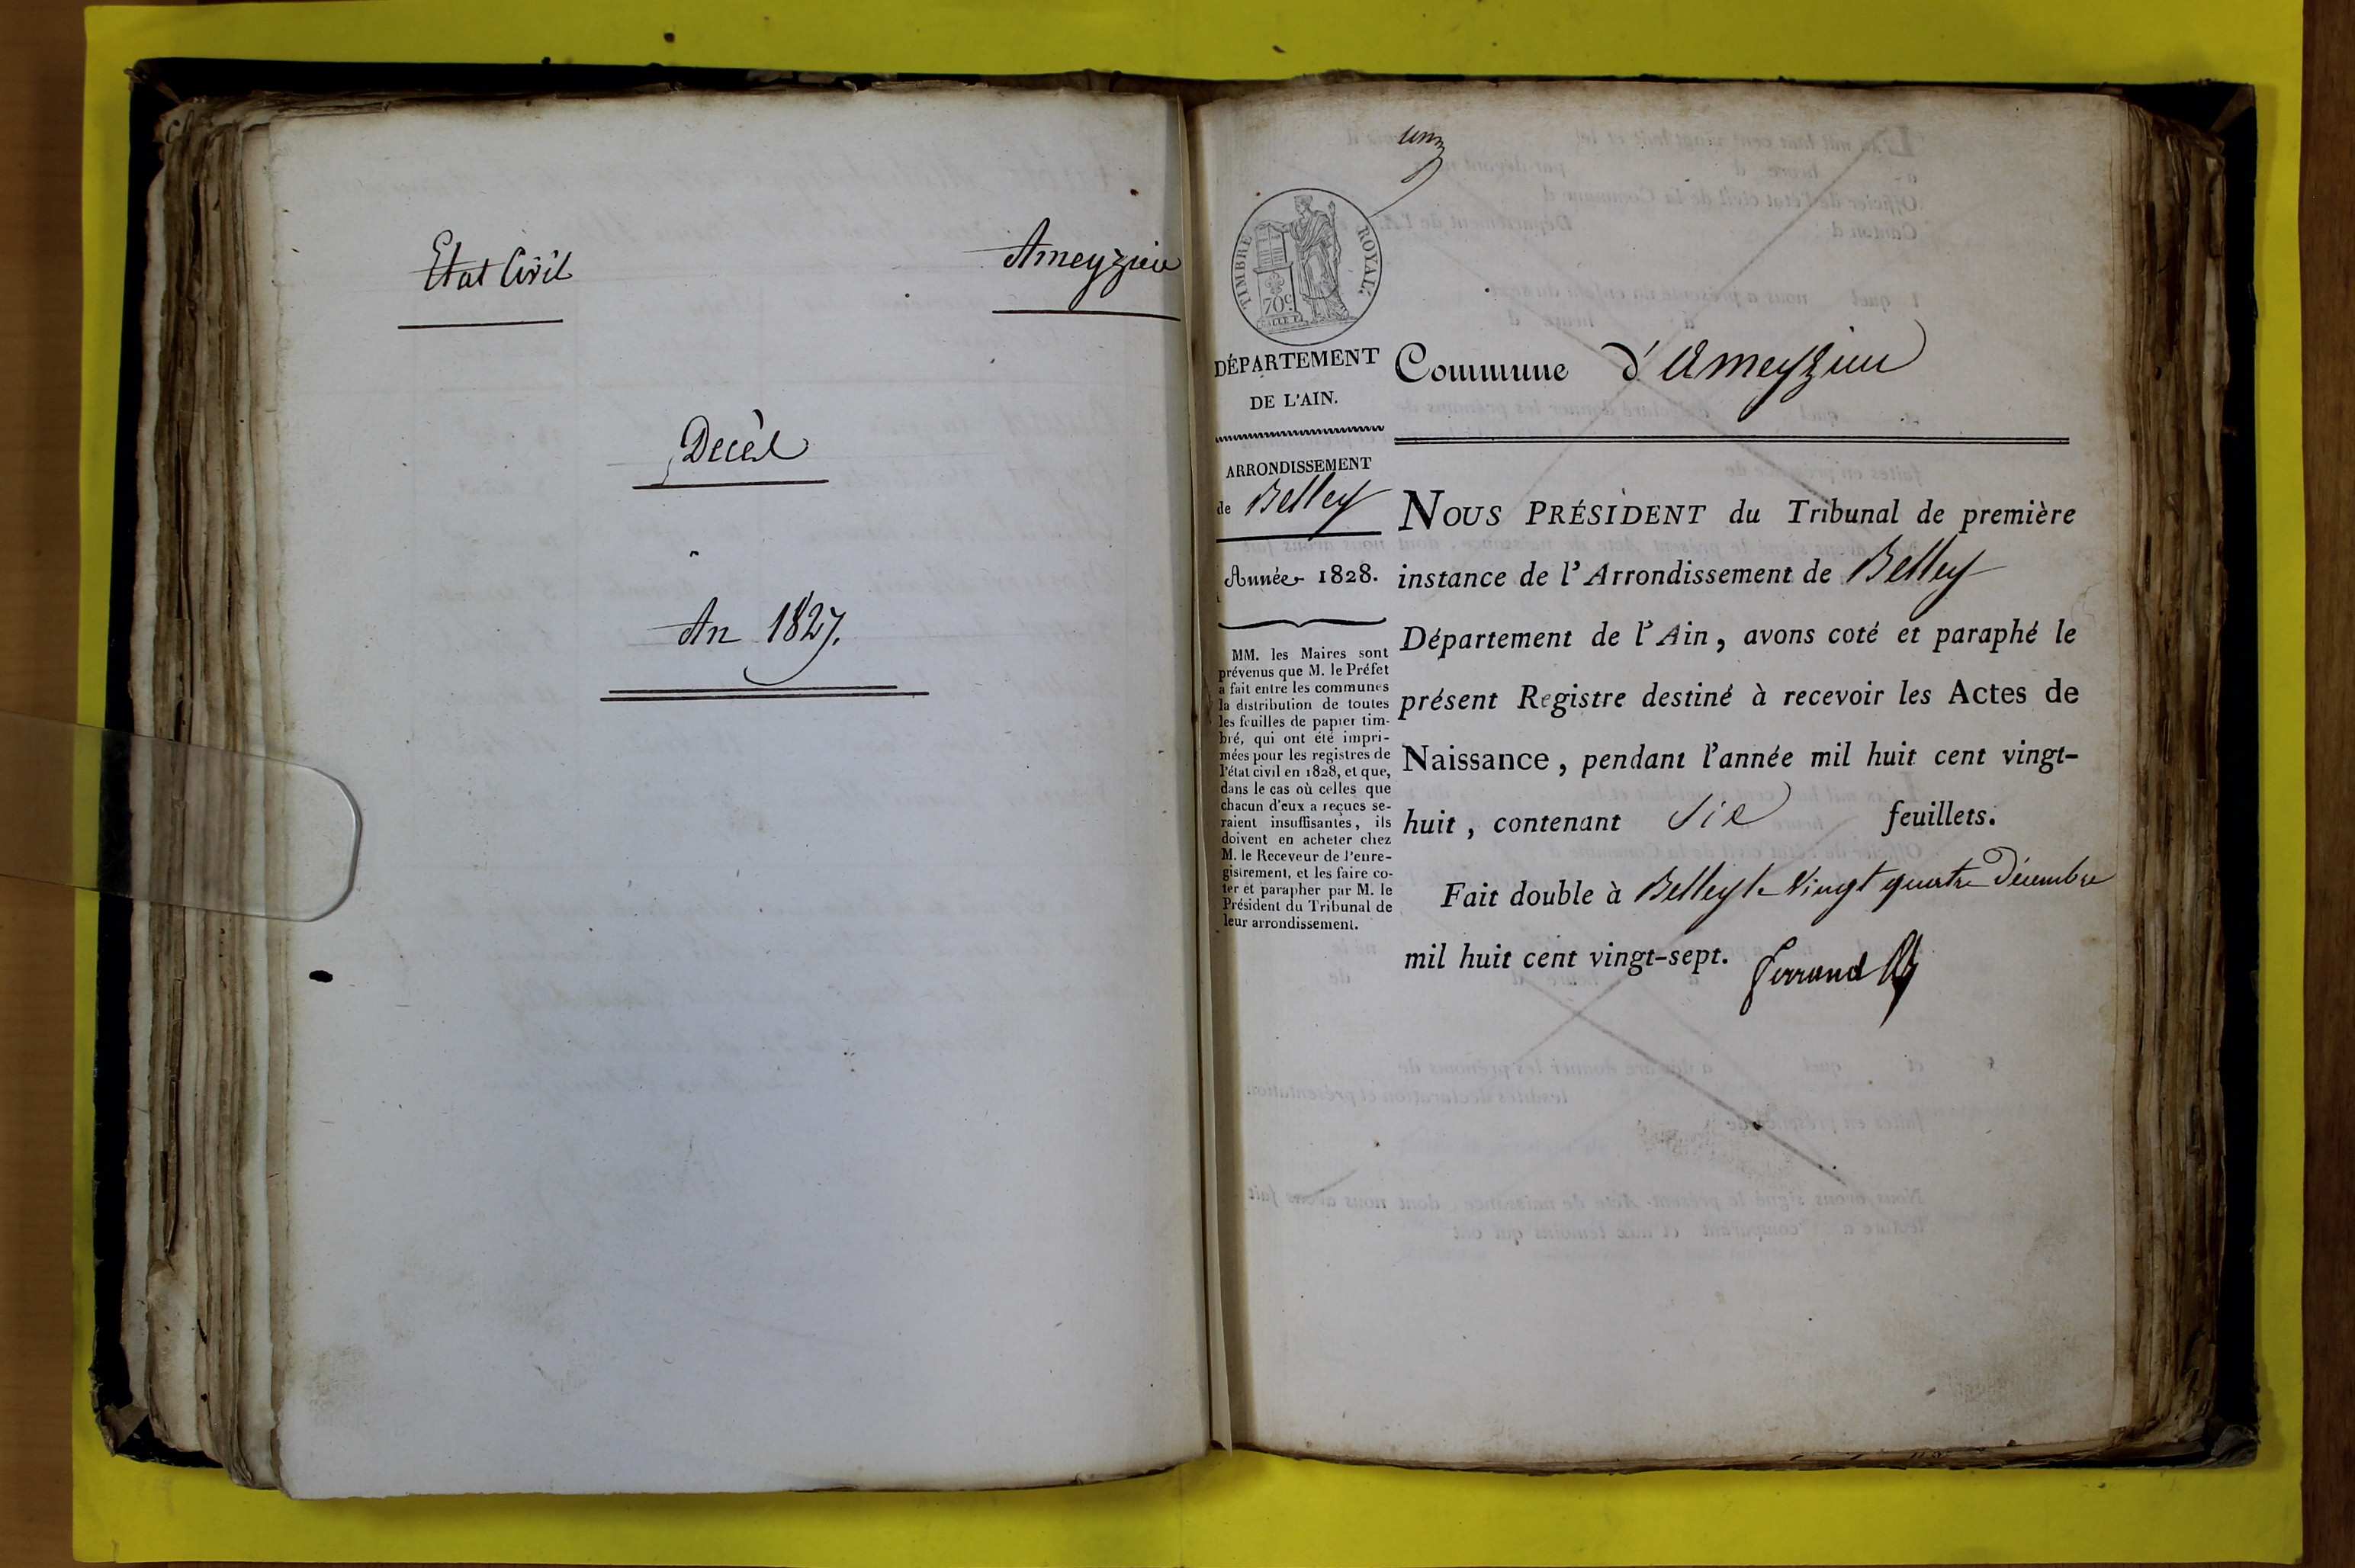 Etat Civil
Ameyzieu
Decès
An 1827.
TIMBRE ROYAL.
70 c
DÉPARTEMENT
DE L'AIN.
ARRONDISSEMENT
de Belley
Année 1828.
MM. les Maires sont
prévenus que M. le Préfet
a fait entre les communes
la distribution de toutes
les feuilles de papier tim-
bré, qui ont été impri-
mées pour les registres de
l'état civil en 1828, et que,
dans le cas où celles que
chacun d'eux a reçues se-
raient insuffisantes, ils
doivent en acheter chez
M. le Receveur de l'enre-
gistrement, et les faire co-
ter et parapher par M. le
Président du Tribunal de
leur arrondissement.
Commune d'Ameyzieu
NOUS PRÉSIDENT du Tribunal de première
instance de l'Arrondissement de Belley
Département de l'Ain, avons coté et paraphé le
présent Registre destiné à recevoir les Actes de
Naissance, pendant l'année mil huit cent vingt-
huit, contenant Six feuillets.
Fait double à Belley le Vingt quatre Décembre
mil huit cent vingt-sept.